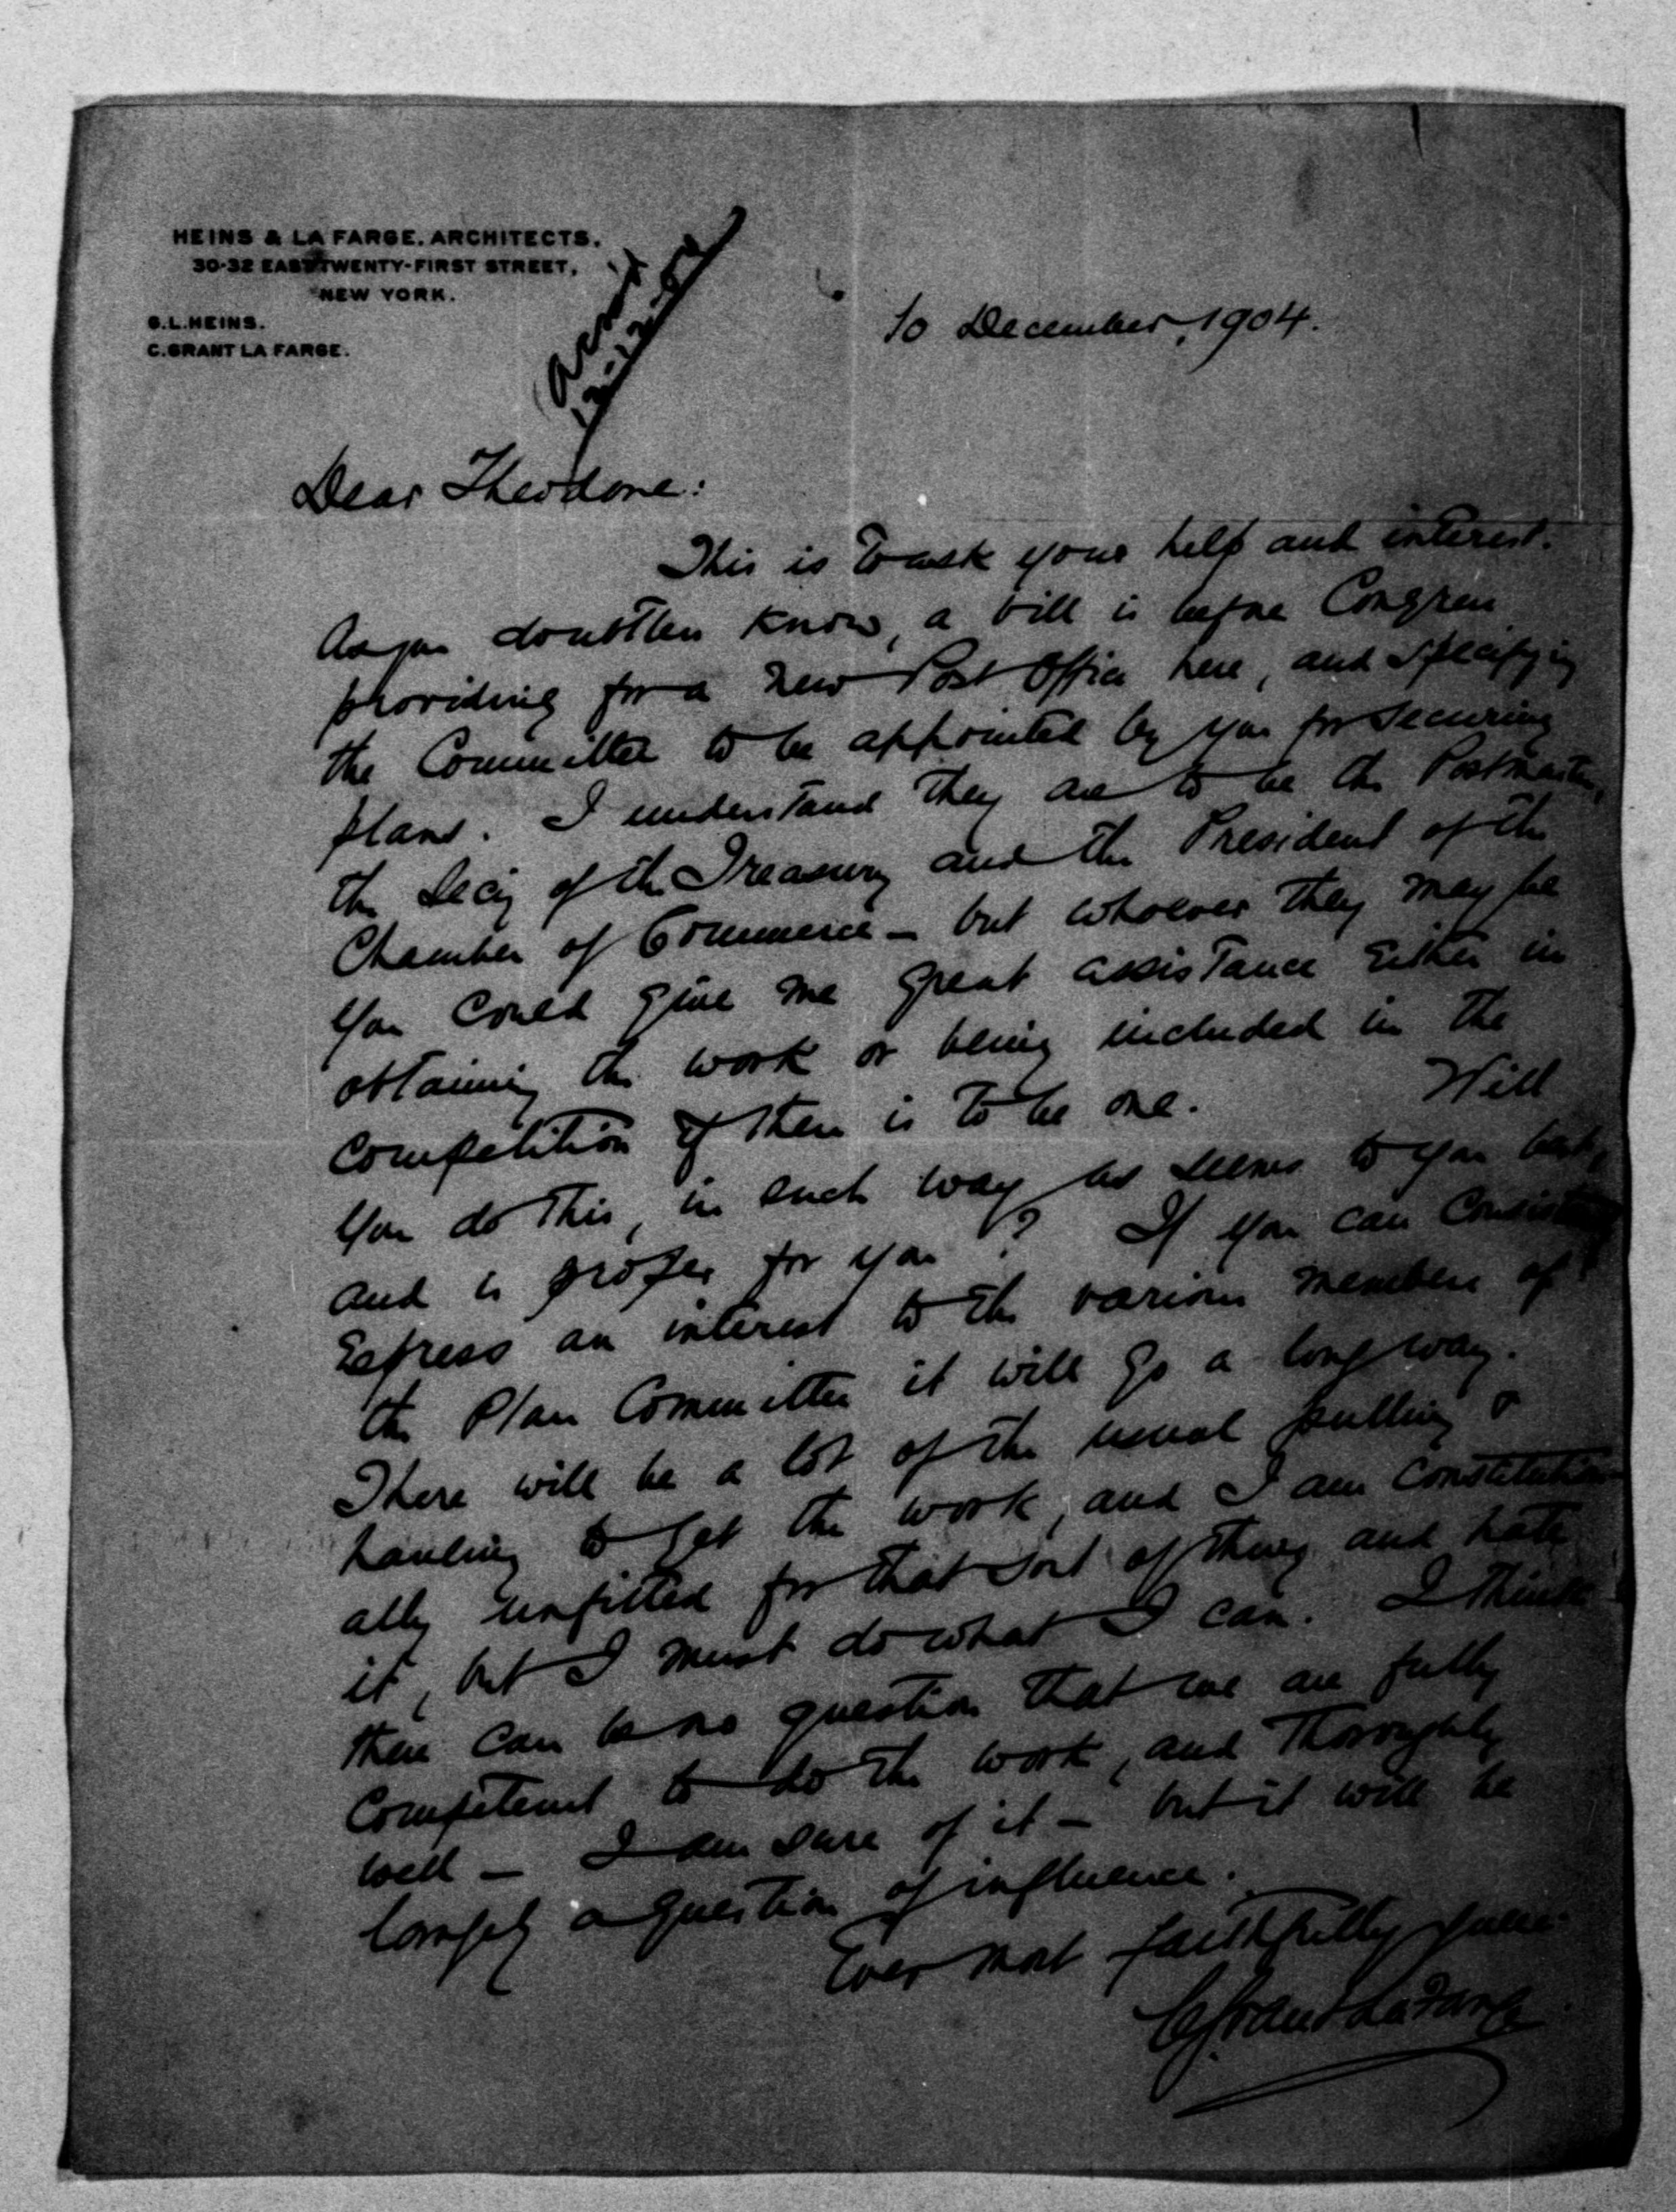 HEINS & LA FARGE, ARCHITECTS,
30-32 EAST TWENTY-FIRST STREET,
NEW YORK.
G.L.HEINS.
C.GRANT LA FARGE.
10 December, 1904.
Dear Theodore:
This is to ask your help and interest.
As you doubtless know, a bill is before Congress
providing for a new Post Office here, and specifying
the Committee to be appointed by you for securing
plans. I understand they are to be the Postmaster,
the Secy of the Treasury and the President of the
Chamber of Commerce – but whoever they may be
you could give me great assistance either in
obtaining the work or being included in the
competition if there is to be one. Will
you do this, in such way as seems to you best,
and is proper for you? If you can
express an interest to the various members of
the Plan Committee it will go a long way.
There will be a lot of the usual pulling &
hauling to get the work, and I am constitution-
ally unfitted for that sort of thing and hate
it, but I must do what I can. I think
there can be no question that we are fully
competent to do the work, and thoroughly
well – I am sure of it – but it will be
largely a question of influence.
Ever most faithfully yours
C. Grant La Farge